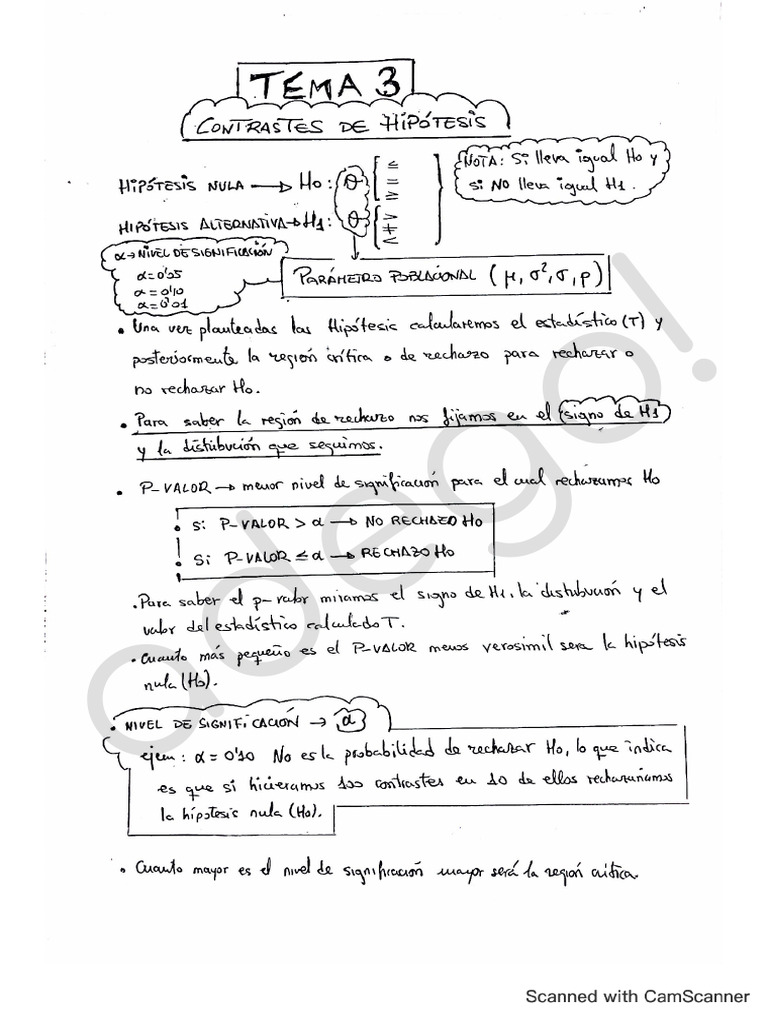 TEMA 3
CONTRASTES DE HIPÓTESIS
HIPÓTESIS NULA → Ho: θ [ ≤ = ≥
NOTA: Si lleva igual Ho y
si NO lleva igual H1.
HIPÓTESIS ALTERNATIVA → H1: θ [ > ≠ <
α → NIVEL DE SIGNIFICACIÓN
α = 0'05
α = 0'10
α = 0'01
PARÁMETRO POBLACIONAL (μ, σ², σ, p)
• Una vez planteadas las Hipótesis calcularemos el estadístico (T) y
posteriormente la región crítica o de rechazo para rechazar o
no rechazar Ho.
• Para saber la región de rechazo nos fijamos en el signo de H1
y la distribución que seguimos.
• P-VALOR → menor nivel de significación para el cual rechazamos Ho
• Si P-VALOR > α → NO RECHAZO Ho
• Si P-VALOR ≤ α → RECHAZO Ho
• Para saber el p-valor miramos el signo de H1, la distribución y el
valor del estadístico calculado T.
• Cuanto más pequeño es el P-VALOR menos verosimil sera la hipótesis
nula (Ho).
• NIVEL DE SIGNIFICACIÓN → α
ejem: α = 0'10 No es la probabilidad de rechazar Ho, lo que indica
es que si hicieramos 100 contrastes en 10 de ellos rechazariamos
la hipótesis nula (Ho).
• Cuanto mayor es el nivel de significación mayor será la región crítica.
adego!
Scanned with CamScanner